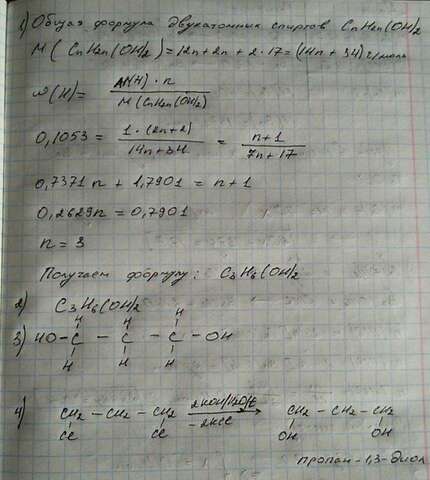 1) Общая формула двухатомных спиртов CnH2n(OH)2
M( CnH2n(OH)2) = 12n + 2n + 2·17 = (14n + 34) г/моль
ω(H) = Ar(H) · n / M(CnH2n(OH)2)
0,1053 = 1·(2n+2) / 14n+34 = n+1 / 7n+17
0,7371n + 1,7901 = n+1
0,2629n = 0,7901
n = 3
Получаем формулу: C3H6(OH)2
2) C3H6(OH)2
H H H
3) HO - C - C - C - OH
H H H
4) CH2 - CH2 - CH2 2KOH/H2O/t CH2 - CH2 - CH2
Cl Cl -2KCl OH OH
пропан-1,3-диол